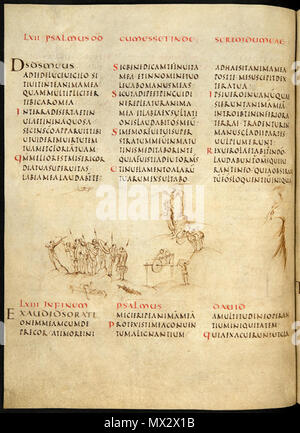 LXII PSALMUS DD CUM ESSET IN DE SERTO IDUMEAE
DSDSMEUS
ADTEDELUCEUIGILO SI
TIUITINTEANIMAMEA
QUAMMULTIPLICITER
TIBICAROMEA
INTERRADESERTAETIN
UIAETINAQUOSA
SICINSCOAPPARUITIBI
UTUIDERIMUIRTUTEM
TUAMETGLORIATUAM
QMMELIORESTMISERICOR
DIATUASUPERUITAS
LABIAMEALAUDABTTE
SICBENEDICAMTEINUITA
MEAETINNOMINETUO
LEUABOMANUSMEAS
SICUTADIPEETPINGUEDI
NEREPLEATURANIMA
MEAETLABIAEXSULTATI
ONISLAUDABITOSMEU
SIMEMORFUITUISUPER
STRATUMMEUMINMATU
TINISMEDITABORINTE
QUIAFUISTIADIUTORMS
ETINUELAMENTOALARU
TUARUMEXSULTABO
ADHAESITANIMAMEA
POSTTEMESUSCEPITDEX
TERATUA
IPSIUEROINUANUMQUAE
SIERUNTANIMAMEA
INTROIBUNTININFERIORA
TERRAETRADENTURIN
MANUSGLADIIPARTES
UULPIUMERUNT
REXUEROLAETABITINDO
LAUDABUNTOMSQUIIU
RANTINEOQUIAOBSTRUC
TUESOSLOQUENTIUINIQUA
LXIII INFINEM PSALMUS DAUID
EXAUDIDSORATI
ONEMMEAMCUMDE
PRECOR ATIMOREINI
MICIERIPEANIMAMEA
PROTEXISTIMEACONUEN
TUMALIGNANTIUM
AMULTITUDINEOPERAN
TIUMINIQUITATEM
QUIAEXACUERUNTUT
alamy
Image ID: MX2X1B
www.alamy.com